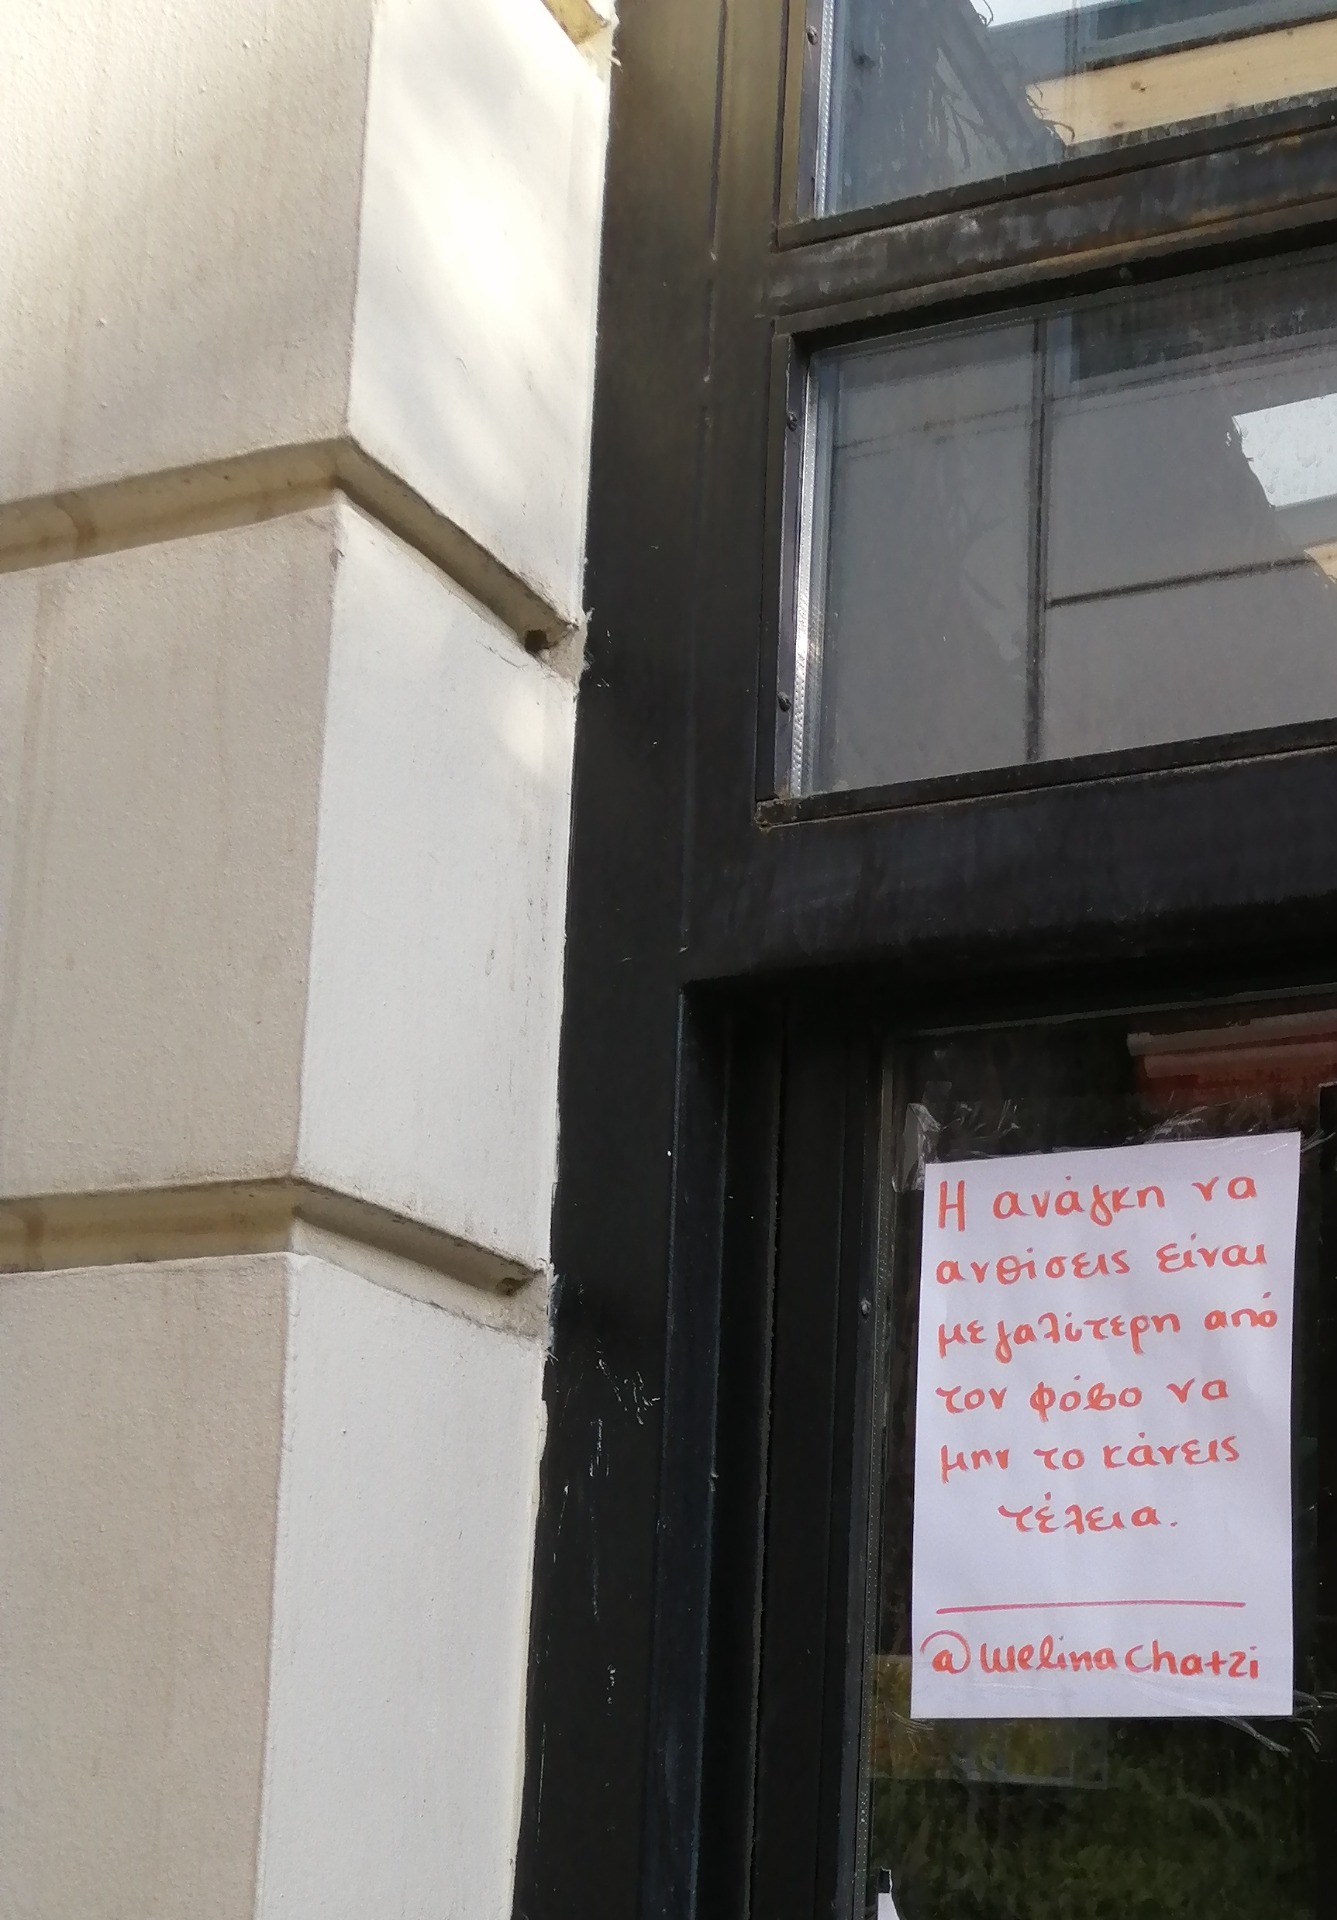 Η ανάγκη να
ανθίσεις είναι
μεγαλίτερη από
τον φόβο να
μην το κάνεις
τέλεια.
@welinachatzi